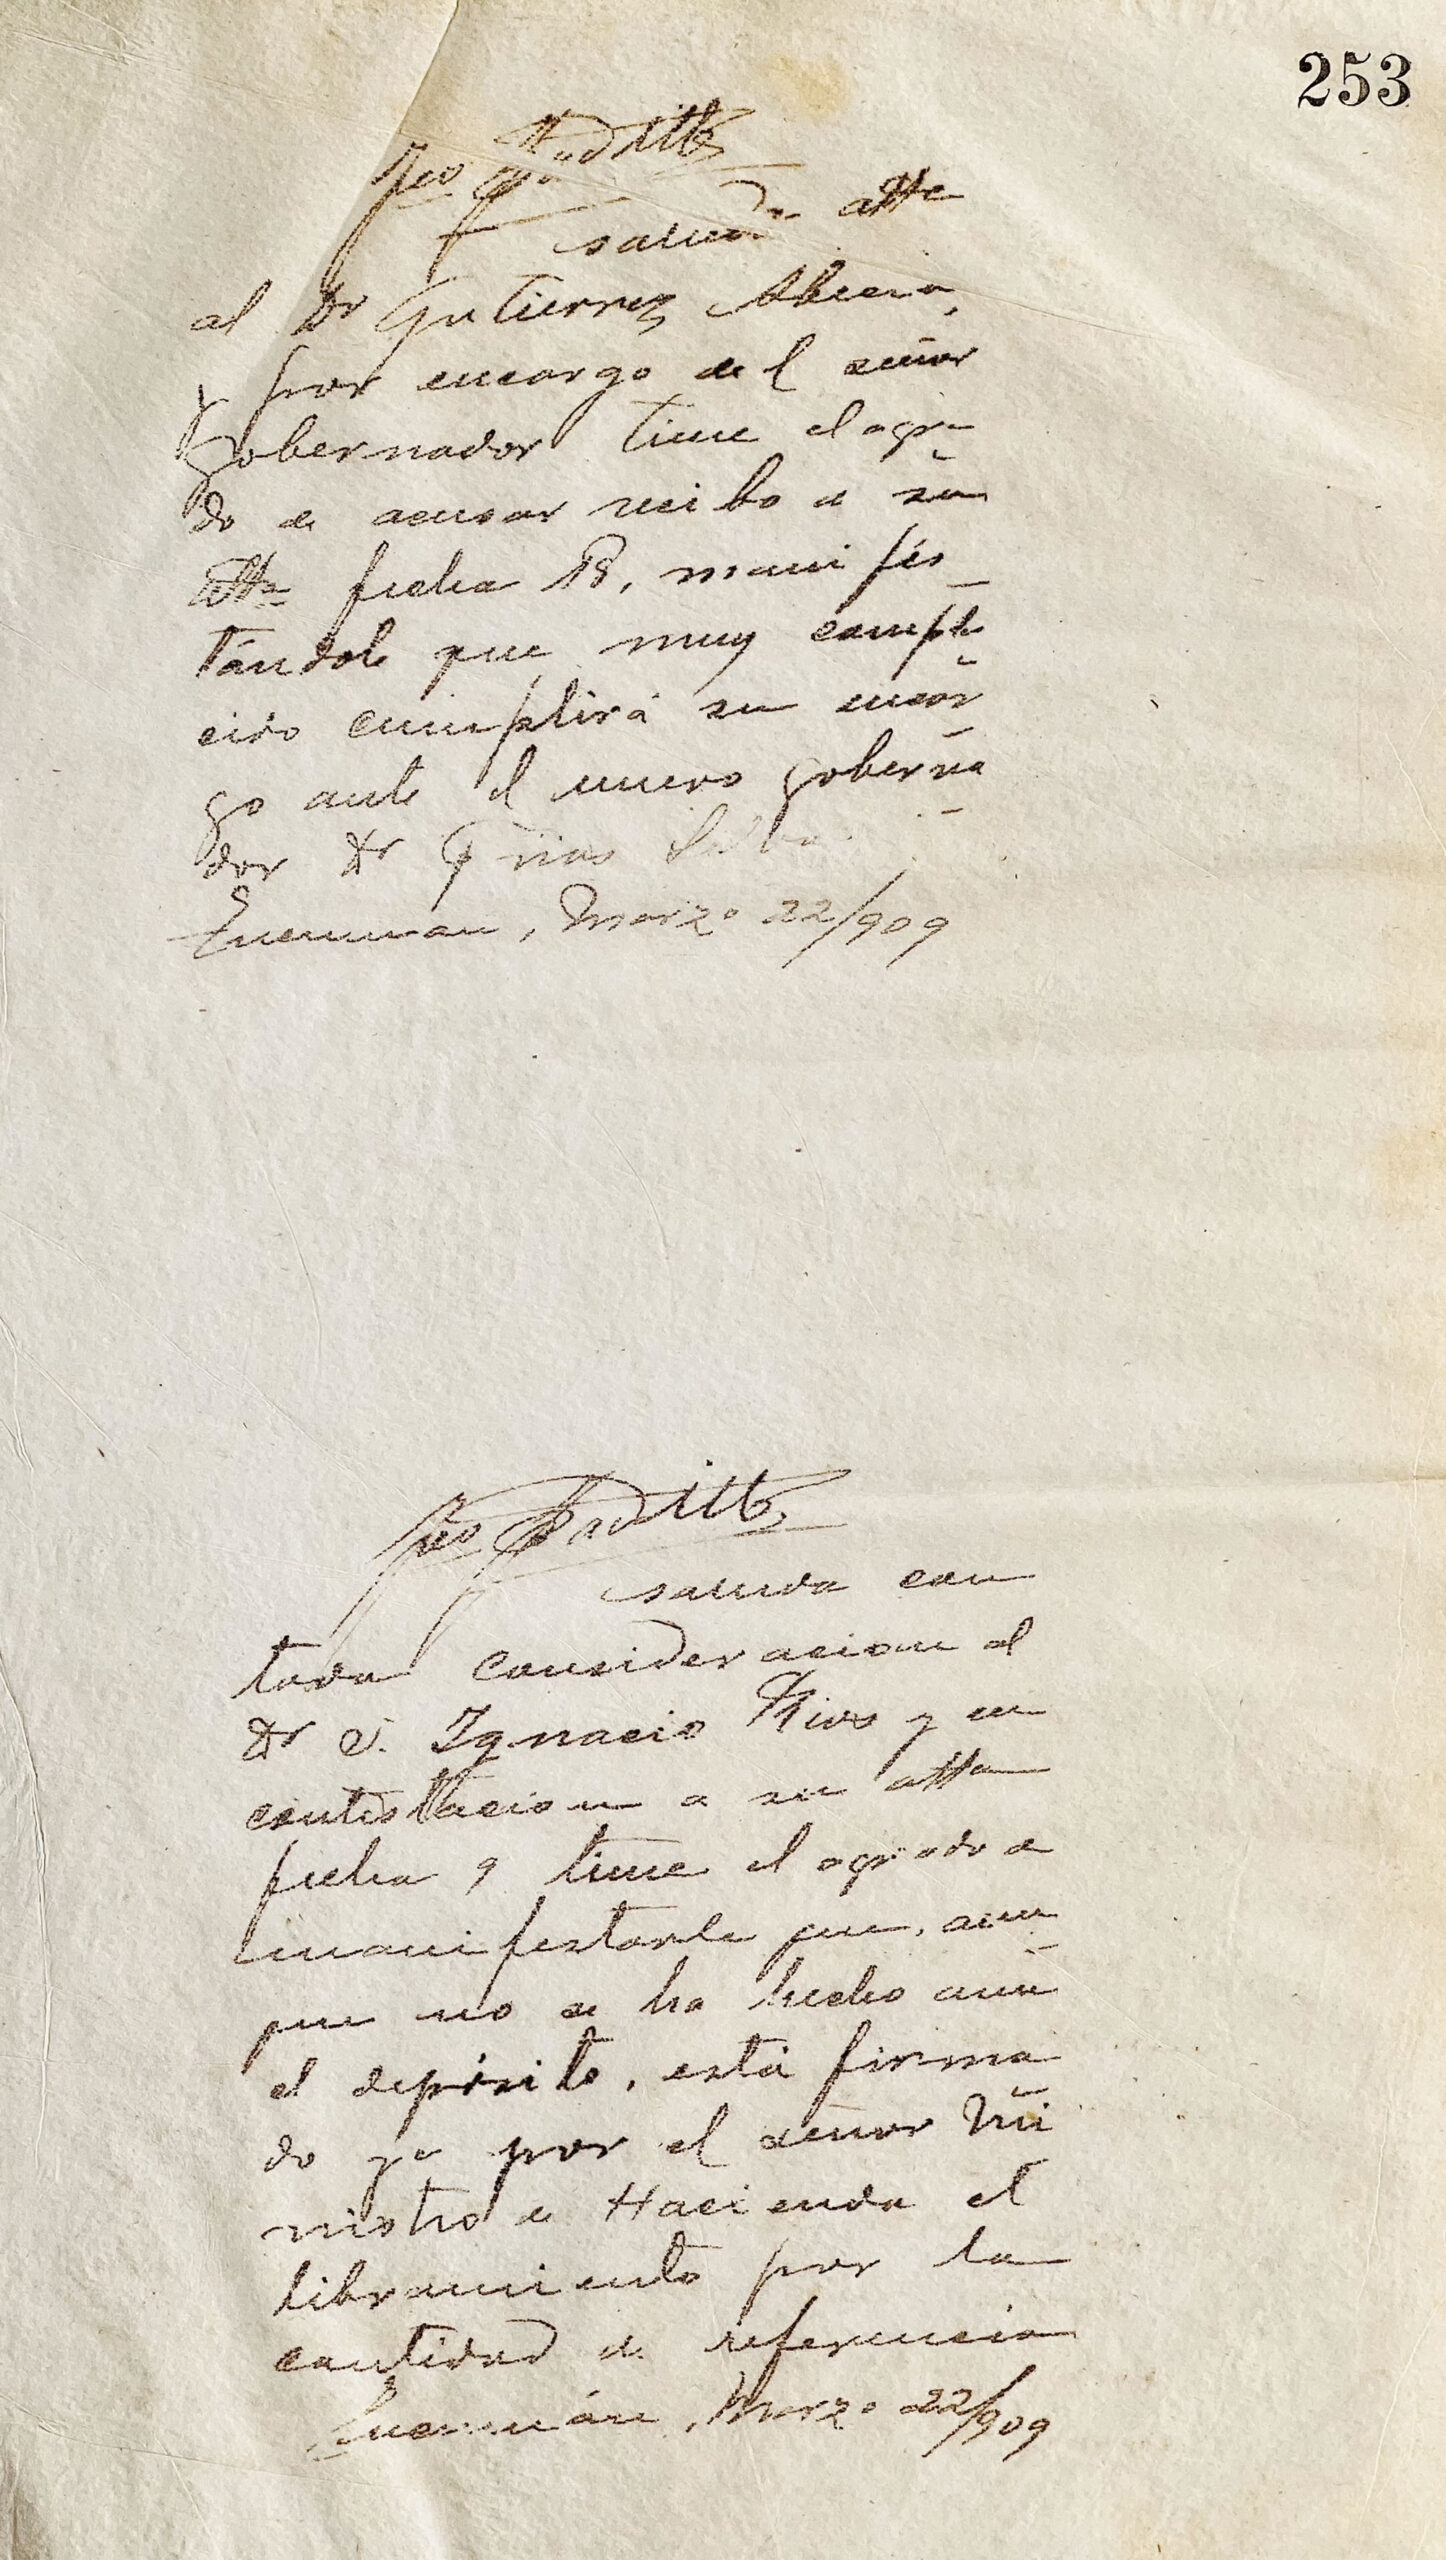 253
Fco Padilla
saluda atte
al Dr Gutierrez
y por encargo del señor
Gobernador tiene el agra
do de acusar recibo a su
atta fecha 18, manifes
tándole que muy compla
cido cumplirá su encar
go ante el nuevo goberna
dor Dr Frias Silva.
Tucuman, Marzo 22/909
Fco Padilla
saluda con
toda consideracion al
Dr J. Ignacio Rios y en
contestacion a su atta
fecha 9 tiene el agrado de
manifestarle que, aun
que no se ha hecho aún
el depósito, está firma
do ya por el señor Mi
nistro de Hacienda el
libramiento por la
cantidad de referencia
Tucumán, Marzo 22/909